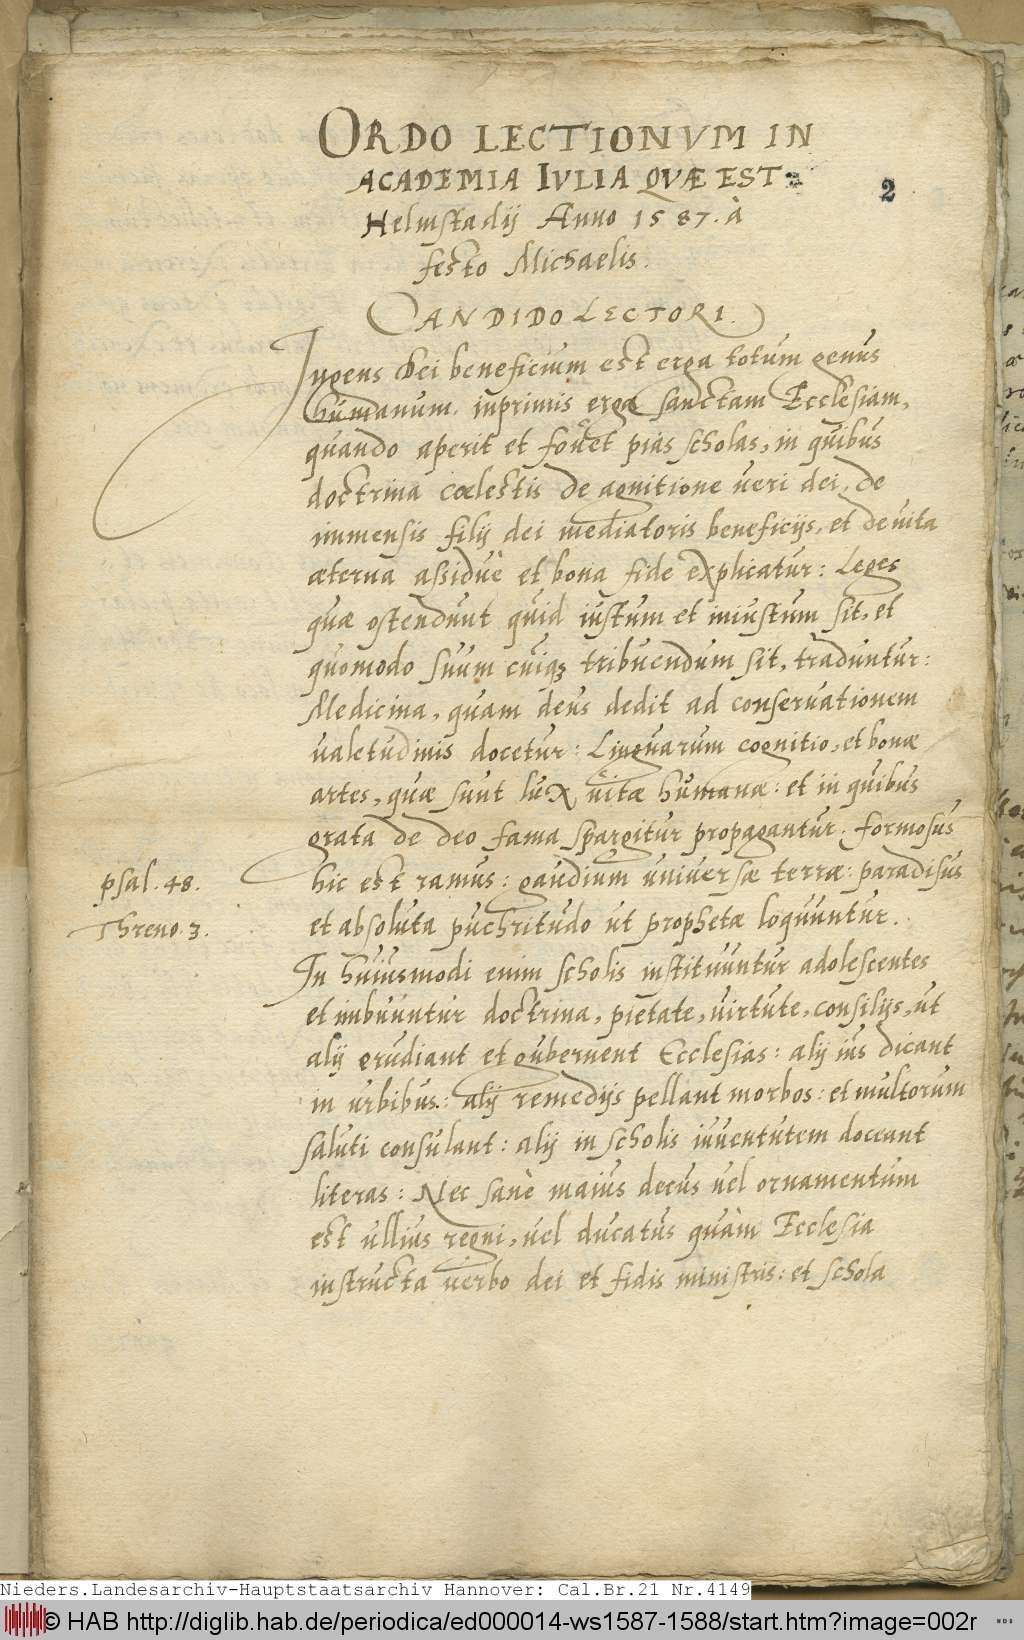 ORDO LECTIONVM IN
ACADEMIA IVLIA QVÆ EST
2
Helmstadij Anno 1587. à
festo Michaelis.
CANDIDO LECTORI.
Ingens Dei beneficium est erga totum genus
humanum, inprimis erga sanctam Ecclesiam,
quando aperit et fouet pias scholas, in quibus
doctrina cœlestis de agnitione ueri dei, de
immensis filij dei mediatoris beneficijs, et de uita
æterna assiduè et bona fide explicatur: Leges
quæ ostendunt quid iustum et iniustum sit, et
quomodo suum cuiqꝫ tribuendum sit, traduntur:
Medicina, quam deus dedit ad conseruationem
ualetudinis docetur: Linguarum cognitio, et bonæ
artes, quæ sunt lux uitæ humanæ: et in quibus
grata de deo fama spargitur propagantur. formosus
psal. 48.
hic est ramus: gaudium uniuersæ terræ: paradisus
Threno. 3.
et absoluta puchritudo ut prophetæ loquuntur.
In huiusmodi enim scholis instituuntur adolescentes
et imbuuntur doctrina, pietate, uirtute, consilijs, ut
alij erudiant et gubernent Ecclesias: alij ius dicant
in urbibus: alij remedijs pellant morbos: et multorum
saluti consulant: alij in scholis iuuentutem doceant
literas: Nec sanè maius decus uel ornamentum
est ullius regni, uel ducatus quàm Ecclesia
instructa uerbo dei et fidis ministris: et schola
Nieders.Landesarchiv-Hauptstaatsarchiv Hannover: Cal.Br.21 Nr.4149
© HAB http://diglib.hab.de/periodica/ed000014-ws1587-1588/start.htm?image=002r